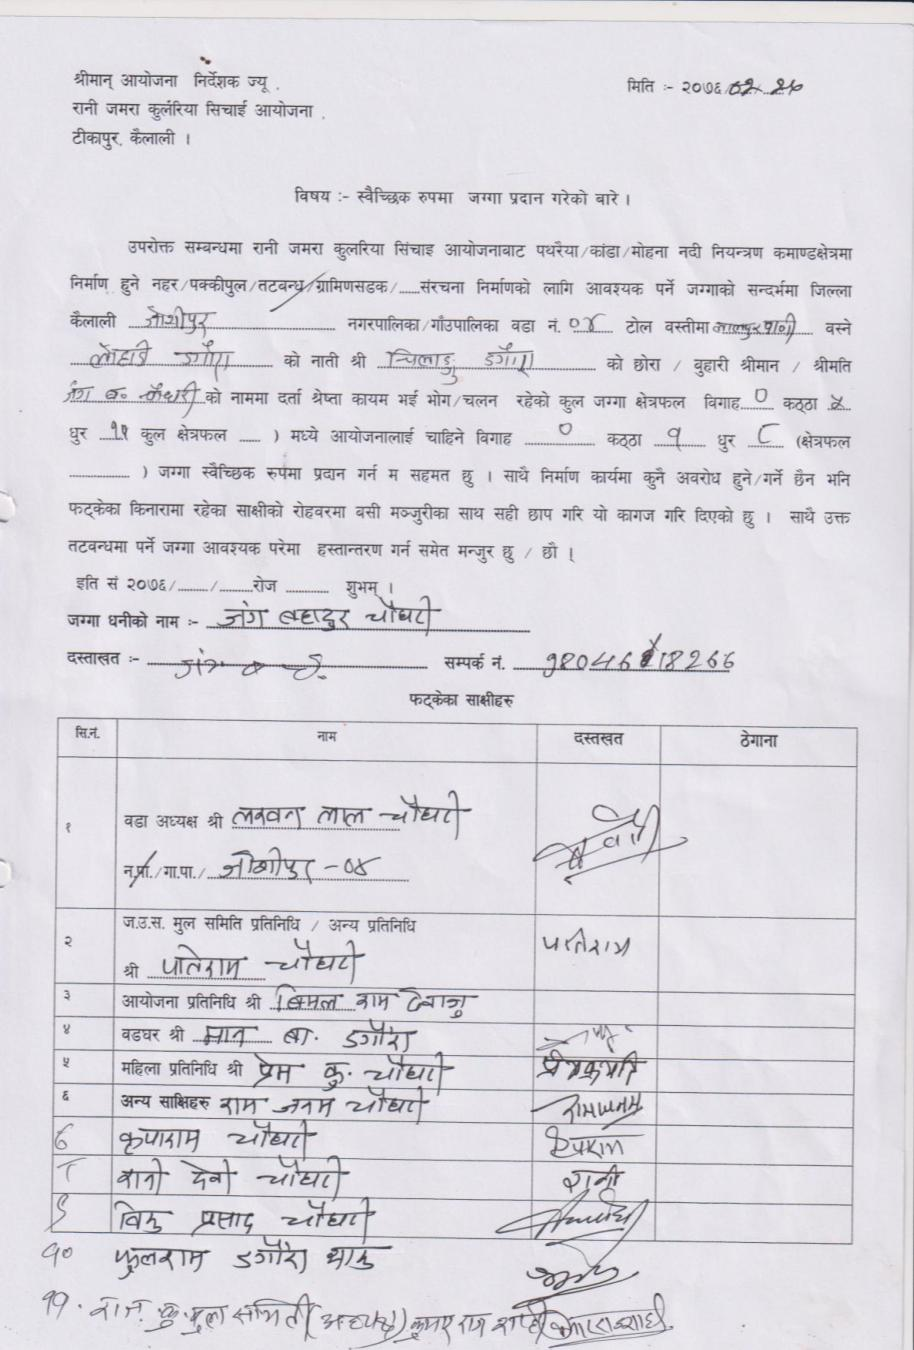 श्रीमान् आयोजना निर्देशक ज्यू .
रानी जमरा कुलरिया सिचाई आयोजना .
टीकापुर, कैलाली ।
मिति :- २०७६/०२
विषय :- स्वैच्छिक रुपमा जग्गा प्रदान गरेको बारे ।
उपरोक्त सम्बन्धमा रानी जमरा कुलरिया सिंचाइ आयोजनाबाट पथरैया/कांडा/मोहना नदी नियन्त्रण कमाण्डक्षेत्रमा
निर्माण हुने नहर/पक्कीपुल/तटबन्ध/ग्रामिणसडक/......संरचना निर्माणको लागि आवश्यक पर्ने जग्गाको सन्दर्भमा जिल्ला
कैलाली जोशीपुर नगरपालिका/गाँउपालिका वडा नं. ०४ टोल वस्तीमा वस्ने
डगौरा को नाती श्री डगौरा को छोरा / बुहारी श्रीमान / श्रीमति
जंग ब. चौधरी को नाममा दर्ता श्रेष्ता कायम भई भोग/चलन रहेको कुल जग्गा क्षेत्रफल विगाह ० कठ्ठा
धुर ११ कुल क्षेत्रफल ...... ) मध्ये आयोजनालाई चाहिने विगाह ० कठ्ठा १ धुर ८ (क्षेत्रफल
................ ) जग्गा स्वैच्छिक रुपमा प्रदान गर्न म सहमत छु । साथै निर्माण कार्यमा कुनै अवरोध हुने/गर्ने छैन भनि
फट्केका किनारामा रहेका साक्षीको रोहवरमा बसी मञ्जुरीका साथ सही छाप गरि यो कागज गरि दिएको छु । साथै उक्त
तटवन्धमा पर्ने जग्गा आवश्यक परेमा हस्तान्तरण गर्न समेत मन्जुर छु / छौ ।
इति सं २०७६/........./..........रोज ............ शुभम् ।
जग्गा धनीको नाम :- जंग बहादुर चौधरी
दस्ताखत :- जं. ब. चौ. सम्पर्क नं.
फट्केका साक्षीहरु
सि.नं. नाम दस्तखत ठेगाना
१ वडा अध्यक्ष श्री लखन लाल चौधरी
न.पा./गा.पा./ जोशीपुर -०४
२ ज.उ.स. मुल समिति प्रतिनिधि / अन्य प्रतिनिधि
श्री पतिराम चौधरी पतिराम
३ आयोजना प्रतिनिधि श्री बिमल राम
४ वडघर श्री मान बा. डगौरा
५ महिला प्रतिनिधि श्री प्रेम कु. चौधरी
६ अन्य साक्षिहरु राम जनम चौधरी रामजनम
७ कृपाराम चौधरी
८ रानी देवी चौधरी रानी
९ प्रसाद चौधरी
१० फुलराम डगौरा थारु
११. मुल समिति (अध्यक्ष)